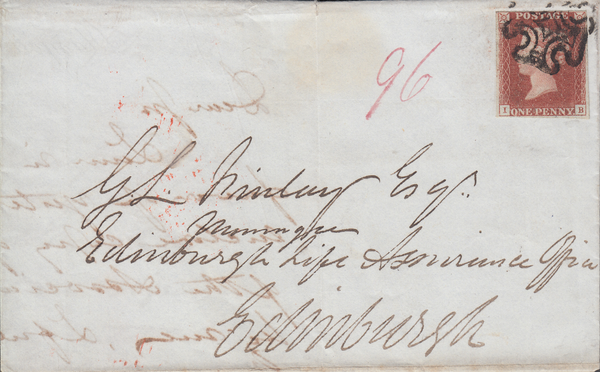 POSTAGE
I ONE PENNY B
96
G. L. Finlay Esqr.
Manager
Edinburgh Life Assurance Office
Edinburgh